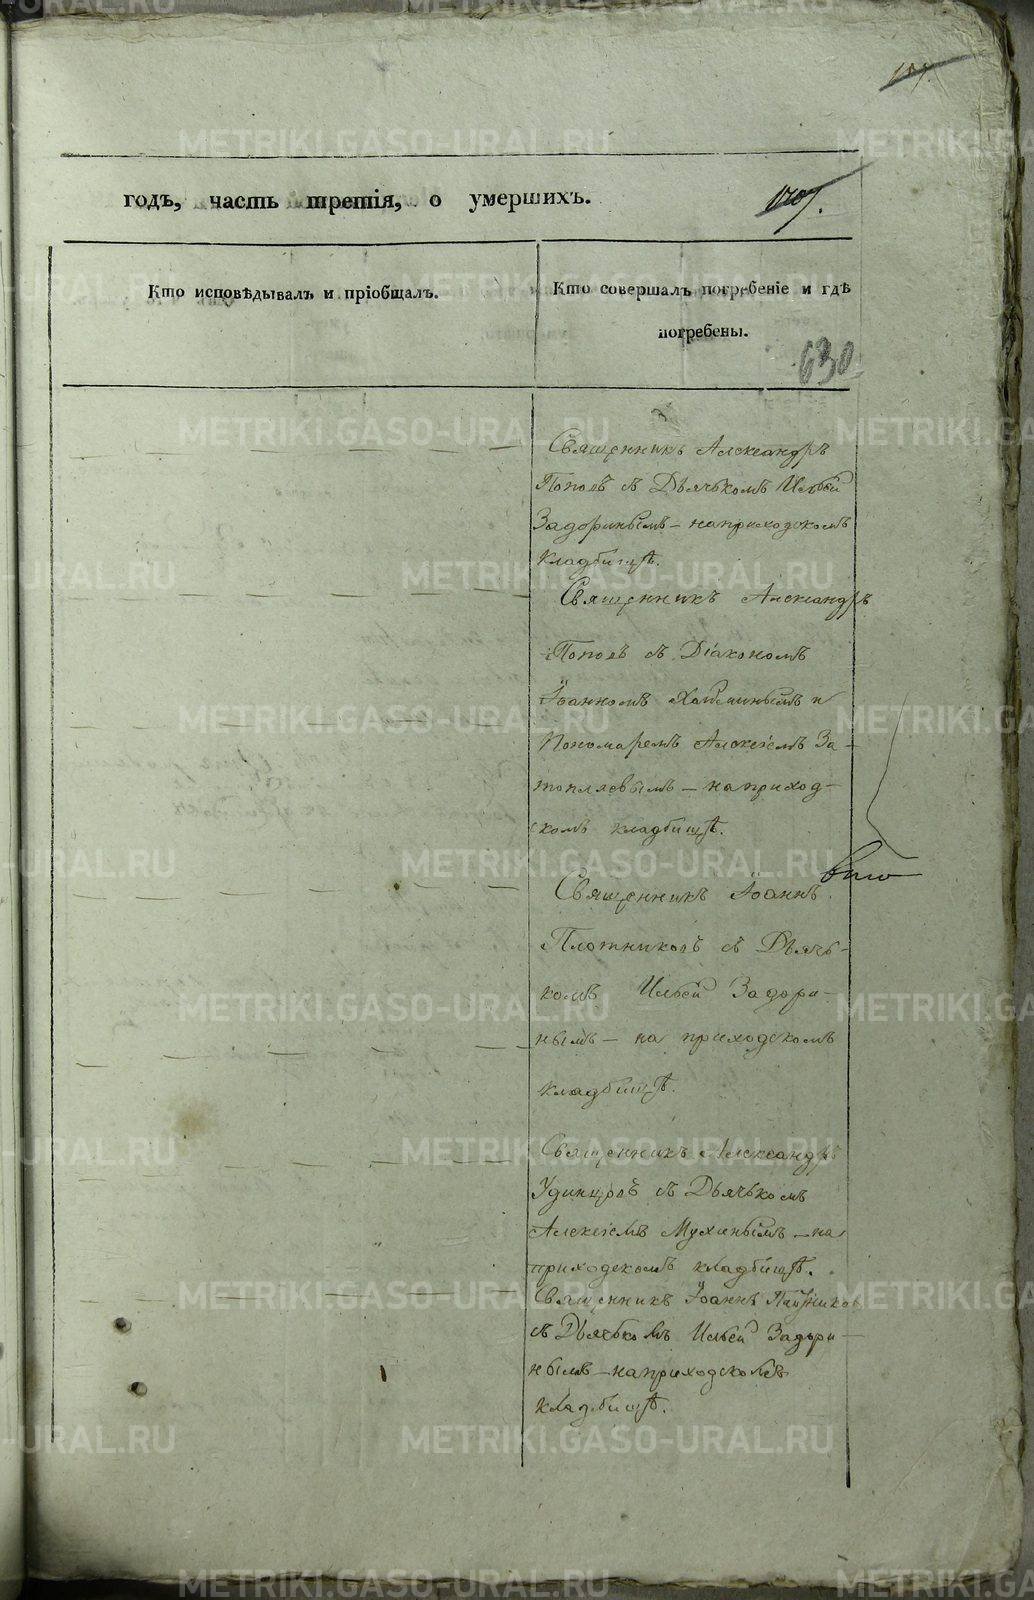 годъ, часть третія, о умершихъ.
Кто исповѣдывалъ и пріобщалъ.
Кто совершалъ погребеніе и гдѣ
погребены.
630
Священникъ Александръ
Поповъ съ Дьячькомъ Ильей
Задоринымъ – на приходскомъ
кладбищѣ.
Священникъ Александръ
Поповъ съ Діакономъ
Іоанномъ и
Пономаремъ Алексіемъ За-
топляевымъ – на приход-
скомъ кладбищѣ.
Священникъ Іоаннъ
Плотниковъ съ Дьячь-
комъ Ильей Задори-
нымъ – на приходскомъ
кладбищѣ.
Священникъ Александръ
Удинцовъ съ Дьячькомъ
Алексіемъ Мухинымъ – на
приходскомъ кладбищѣ.
Священникъ Іоаннъ Плотников
съ Дьячькомъ Ильей Задори-
нымъ – на приходскомъ
кладбищѣ.
METRIKI.GASO-URAL.RU